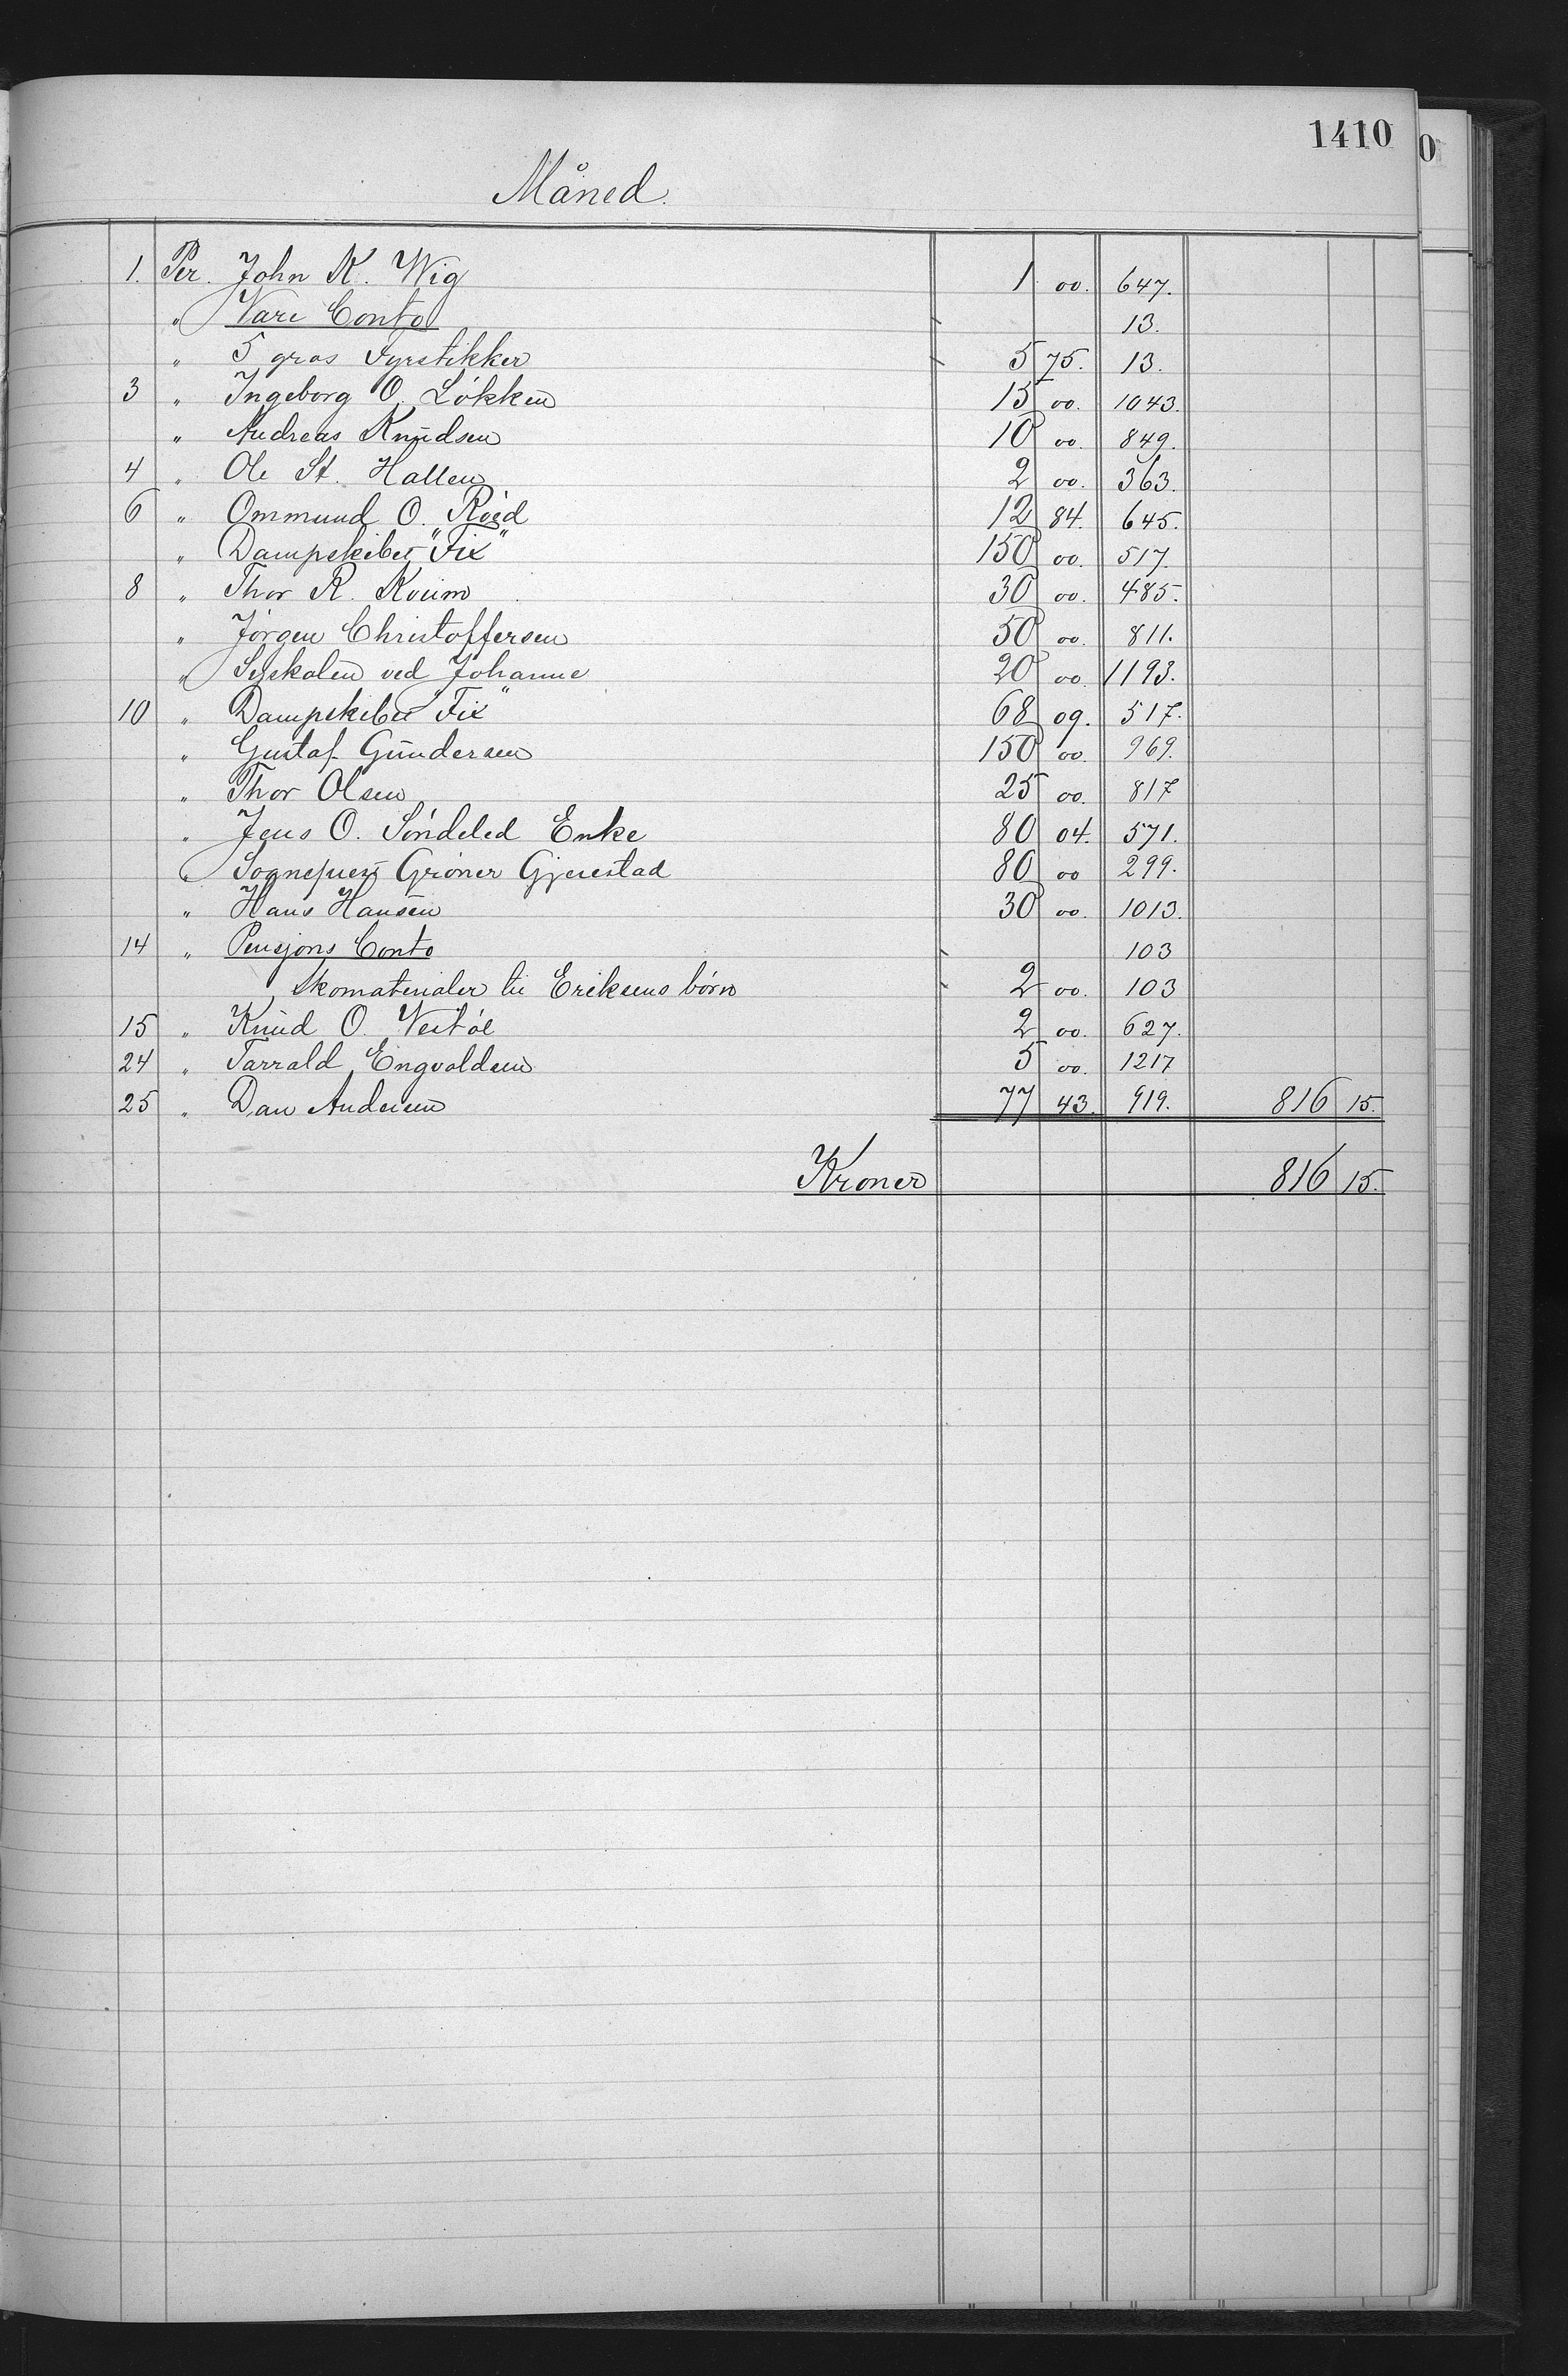 1410
0
Måned.
1. Per. John K. Wig 1 00. 647.
" Vare Conto 13.
" 5 gros Fyrstikker 5 75. 13.
3 " Ingeborg O. Løkken 15 00. 1043.
" Andreas Knudsen 10 00. 849.
4 " Ole St. Hallen 2 00. 363.
6 " Ommund O. Röed 12 84. 645.
" Dampskibet "Fix" 150 00. 517.
8 " Thor R. 30 00. 485.
" Jørgen Christoffersen 50 00. 811.
" Syskolen ved Johanne 20 00. 1193.
10 " Dampskibet "Fix" 68 09. 517.
" Gustaf Gundersen 150 00. 969.
" Thor Olsen 25 00. 817
" Jens O. Søndeled Enke 80 04. 571.
" Sognepres Grøner Gjerestad 80 00 299.
" Hans Hansen 30 00. 1013.
14 " Pensjons Conto 103
Skomaterialer til Eriksens børn 2 00. 103
15 " Knud O. Vestøl 2 00. 627.
24 " Tarrald Engvoldsen 5 00. 1217
25 " Dan Andersen 77 43. 919. 816 15.
Kroner 816 15.